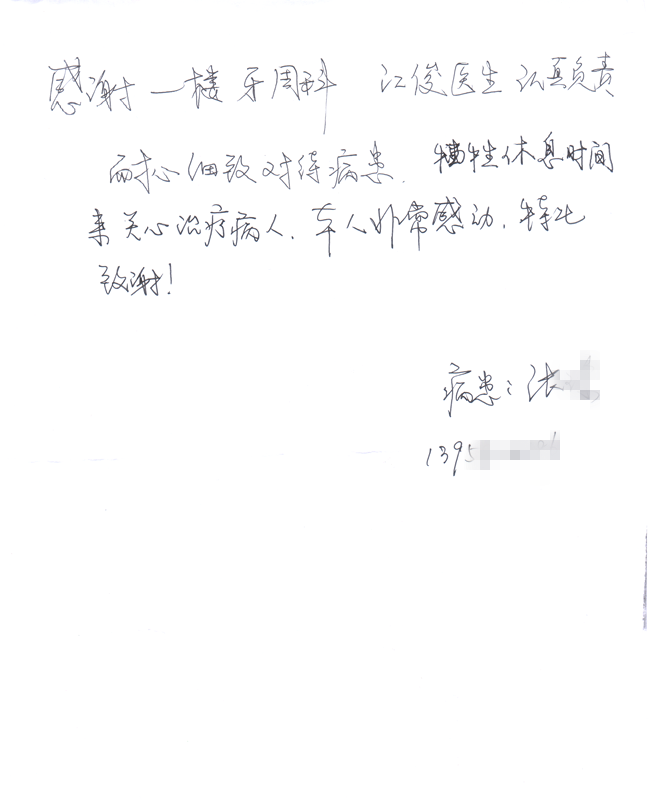 感谢一楼牙周科 江俊医生认真负责
而耐心细致对待病患. 牺牲休息时间
来关心治疗病人. 本人非常感动. 特此
致谢!
病患: 张
1395